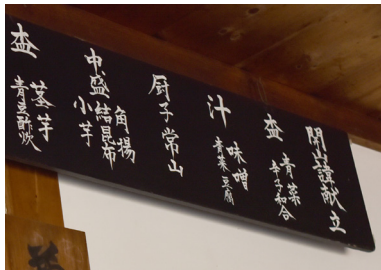 開山諱献立
青菜
辛子和合
汁
味噌
青菜豆腐
厨子常山
中盛
角揚
結昆布
小芋
茎芋